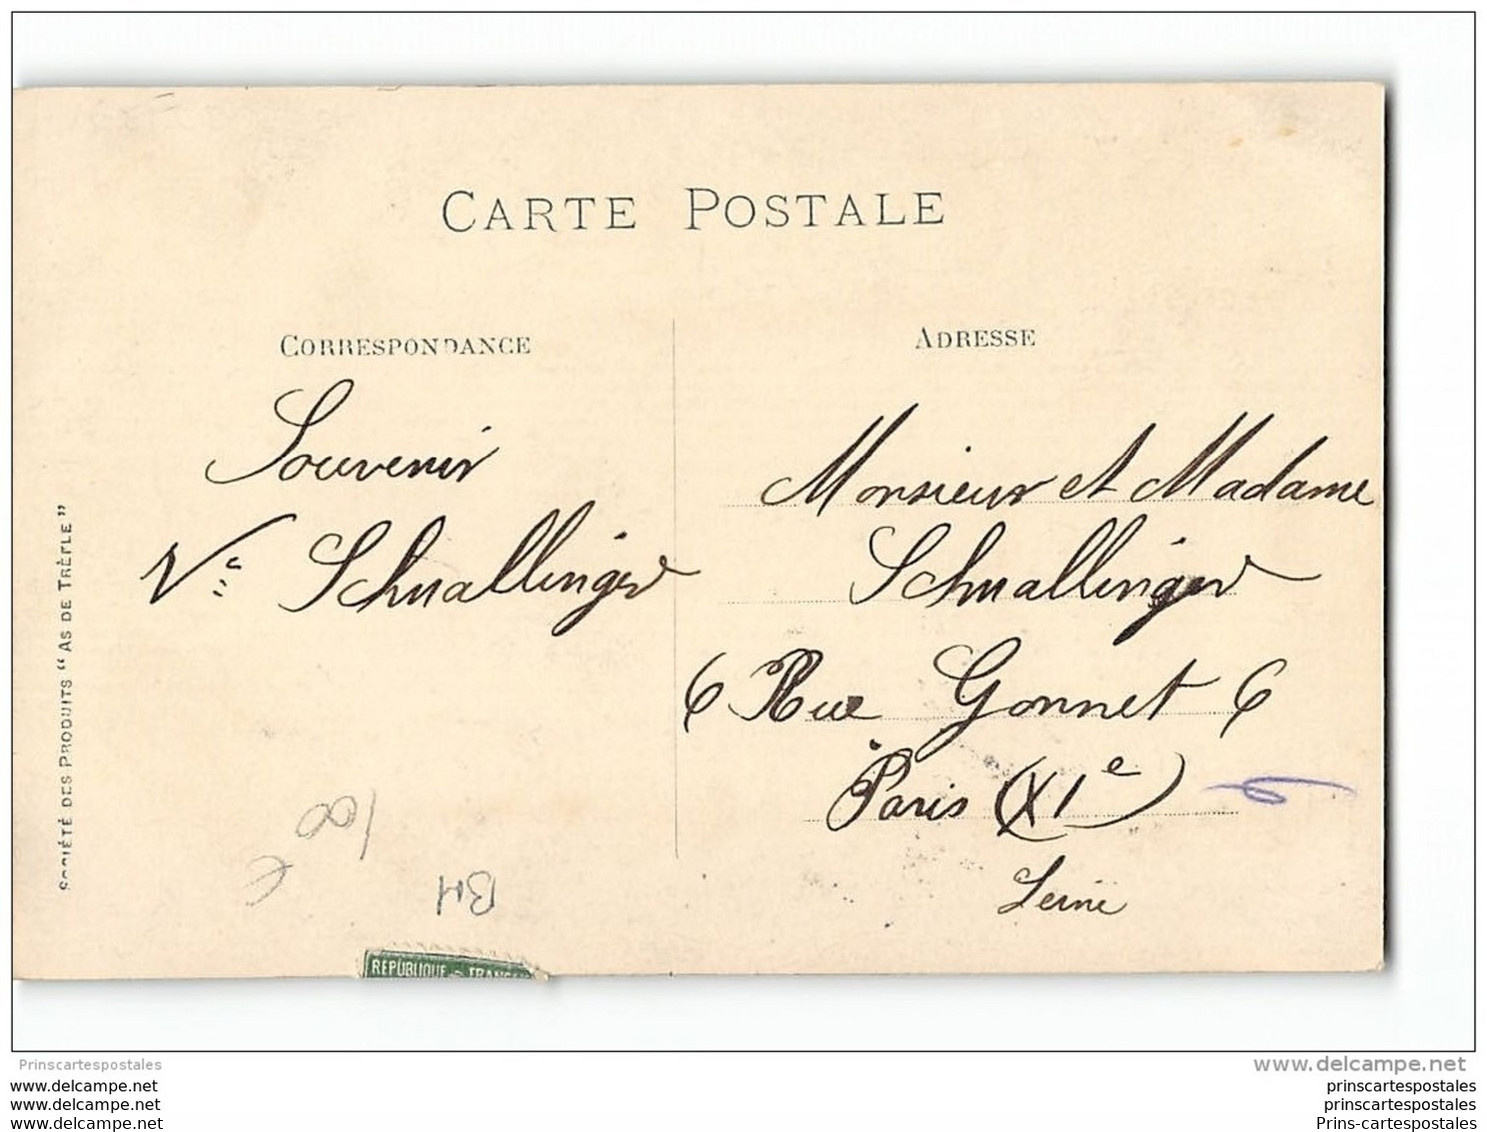 CARTE POSTALE
CORRESPONDANCE
Souvenir
Ve Schnallinger
ADRESSE
Monsieur et Madame
Schnallinger
6 Rue Gonnet 6
Paris (XIe)
Seine
SOCIÉTÉ DES PRODUITS "AS DE TRÈFLE"
100
€
BM
RÉPUBLIQUE FRANÇAISE
Prinscartespostales
www.delcampe.net
www.delcampe.net
www.delcampe.net
www.delcampe.net
prinscartespostales
prinscartespostales
Prins-cartespostales